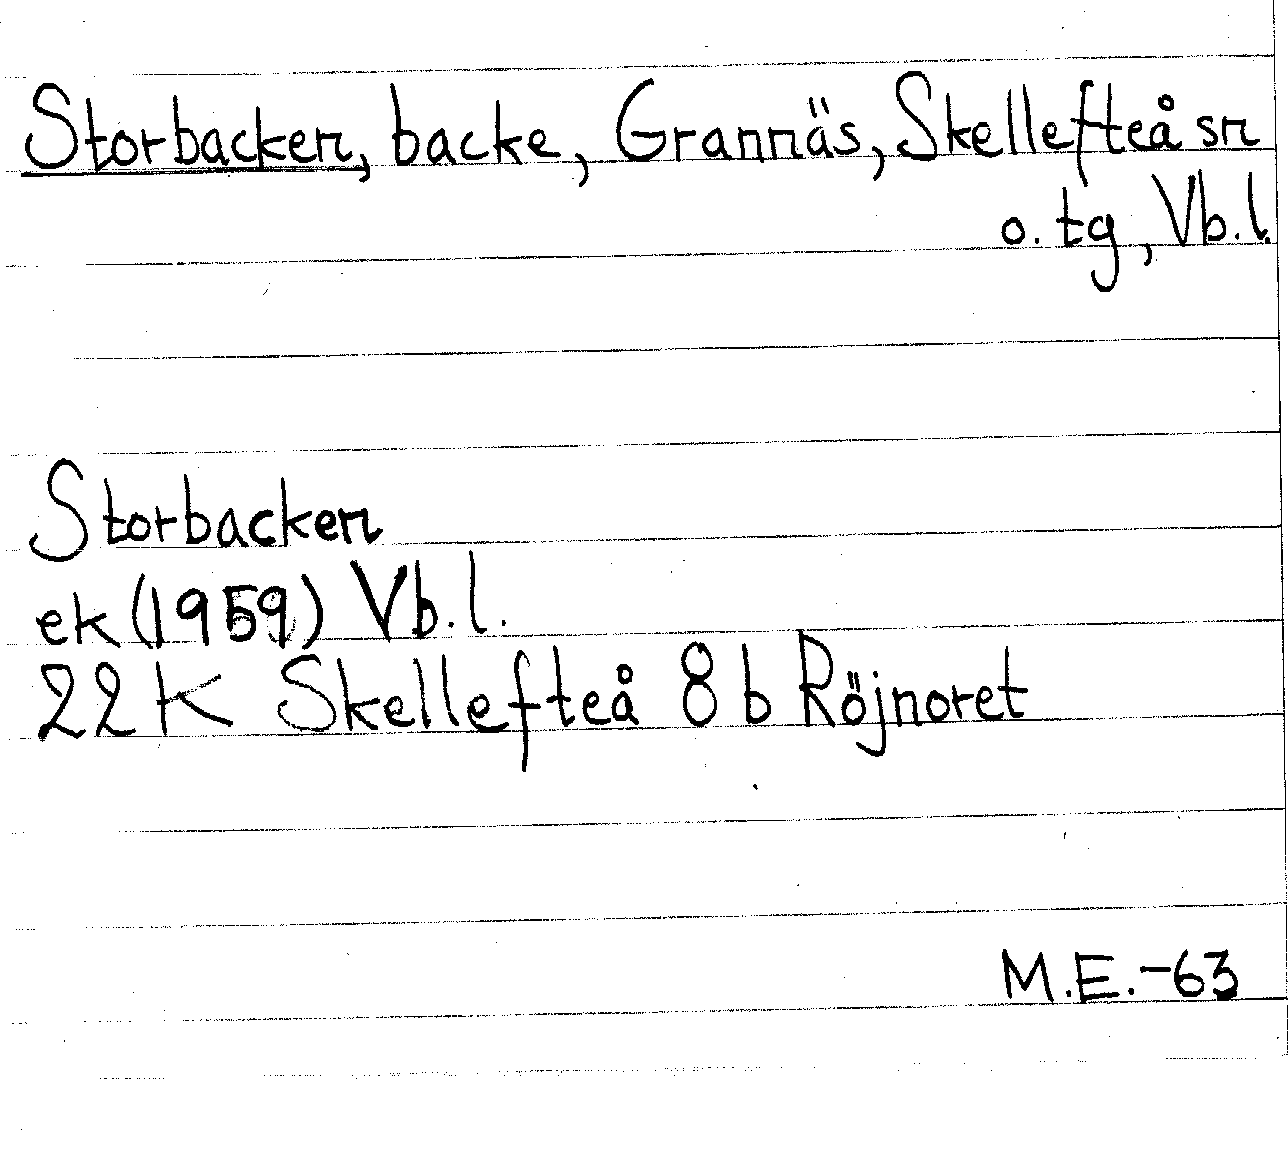 Storbacken, backe, Grannäs, Skellefteå sn
o. tg, Vb.l.
Storbacken
ek (1959) Vb.l.
22K Skellefteå 8 b Röjnoret
M.E.-63